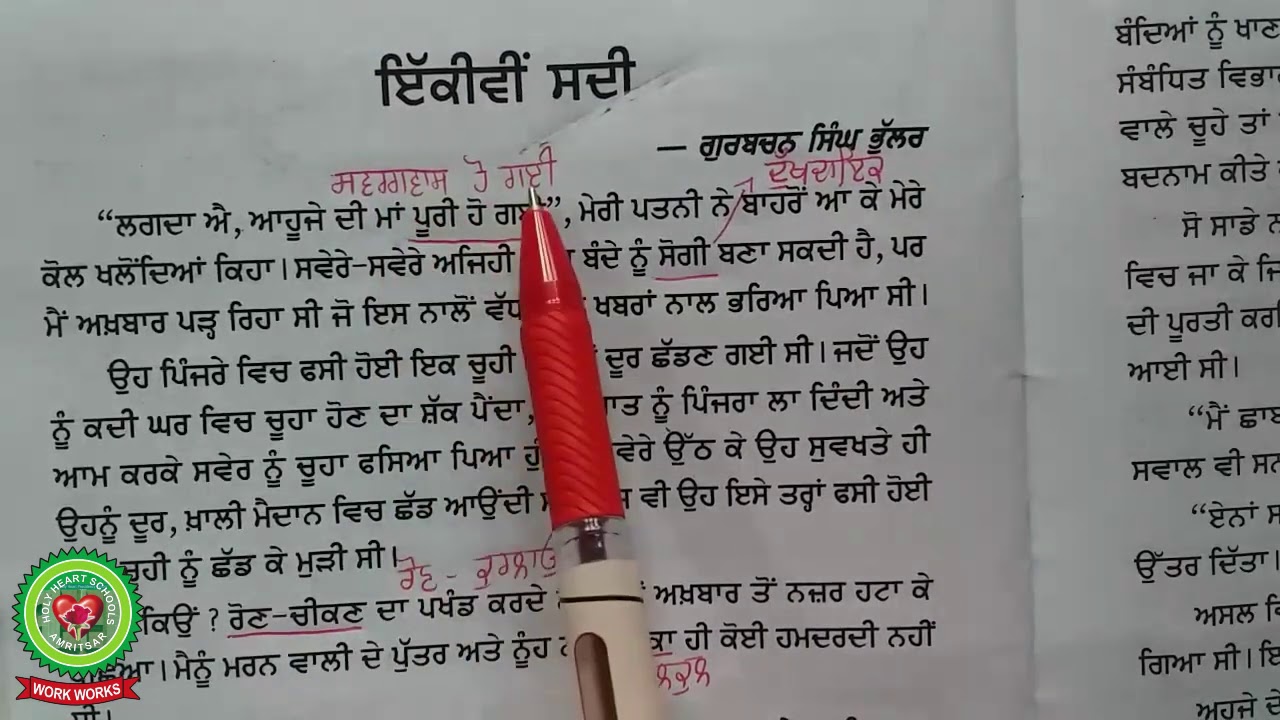 ਇੱਕੀਵੀਂ ਸਦੀ
— ਗੁਰਬਚਨ ਸਿੰਘ ਭੁੱਲਰ
ਸਵਰਗਵਾਸ ਹੋ ਗਈ
ਦੁੱਖਦਾਇਕ
“ਲਗਦਾ ਐ, ਆਹੂਜੇ ਦੀ ਮਾਂ ਪੂਰੀ ਹੋ ”, ਮੇਰੀ ਪਤਨੀ ਨੇ ਬਾਹਰੋਂ ਆ ਕੇ ਮੇਰੇ
ਕੋਲ ਖਲੋਂਦਿਆਂ ਕਿਹਾ। ਸਵੇਰੇ-ਸਵੇਰੇ ਅਜਿਹੀ ਬੰਦੇ ਨੂੰ ਸੋਗੀ ਬਣਾ ਸਕਦੀ ਹੈ, ਪਰ
ਮੈਂ ਅਖ਼ਬਾਰ ਪੜ੍ਹ ਰਿਹਾ ਸੀ ਜੋ ਇਸ ਨਾਲੋਂ ਖਬਰਾਂ ਨਾਲ ਭਰਿਆ ਪਿਆ ਸੀ।
ਉਹ ਪਿੰਜਰੇ ਵਿਚ ਫਸੀ ਹੋਈ ਇਕ ਚੂਹੀ ਦੂਰ ਛੱਡਣ ਗਈ ਸੀ। ਜਦੋਂ ਉਹ
ਨੂੰ ਕਦੀ ਘਰ ਵਿਚ ਚੂਹਾ ਹੋਣ ਦਾ ਸ਼ੱਕ ਪੈਂਦਾ, ਨੂੰ ਪਿੰਜਰਾ ਲਾ ਦਿੰਦੀ ਅਤੇ
ਆਮ ਕਰਕੇ ਸਵੇਰ ਨੂੰ ਚੂਹਾ ਫਸਿਆ ਪਿਆ ਉੱਠ ਕੇ ਉਹ ਸੁਵਖਤੇ ਹੀ
ਉਹਨੂੰ ਦੂਰ, ਖ਼ਾਲੀ ਮੈਦਾਨ ਵਿਚ ਛੱਡ ਆਉਂਦੀ ਵੀ ਉਹ ਇਸੇ ਤਰ੍ਹਾਂ ਫਸੀ ਹੋਈ
ਚੂਹੀ ਨੂੰ ਛੱਡ ਕੇ ਮੁੜੀ ਸੀ।
ਰੋਣ -
ਕਿਉਂ ? ਰੋਣ-ਚੀਕਣ ਦਾ ਪਖੰਡ ਕਰਦੇ ਅਖ਼ਬਾਰ ਤੋਂ ਨਜ਼ਰ ਹਟਾ ਕੇ
ਮੈਨੂੰ ਮਰਨ ਵਾਲੀ ਦੇ ਪੁੱਤਰ ਅਤੇ ਨੂੰਹ ਹੀ ਕੋਈ ਹਮਦਰਦੀ ਨਹੀਂ
ਸੀ।
ਬੰਦਿਆਂ ਨੂੰ
ਸੰਬੰਧਿਤ
ਵਾਲੇ ਚੂਹੇ ਤਾਂ
ਬਦਨਾਮ ਕੀਤੇ
ਸੋ ਸਾਡੇ
ਵਿਚ ਜਾ ਕੇ
ਦੀ ਪੂਰਤੀ
ਆਈ ਸੀ।
“ਮੈਂ
ਸਵਾਲ ਵੀ
“ਏਨਾਂ
ਉੱਤਰ ਦਿੱਤਾ।
ਅਸਲ
ਗਿਆ ਸੀ।
ਅਹੂਜੇ ਦੇ
HOLY HEART SCHOOLS
AMRITSAR
WORK WORKS